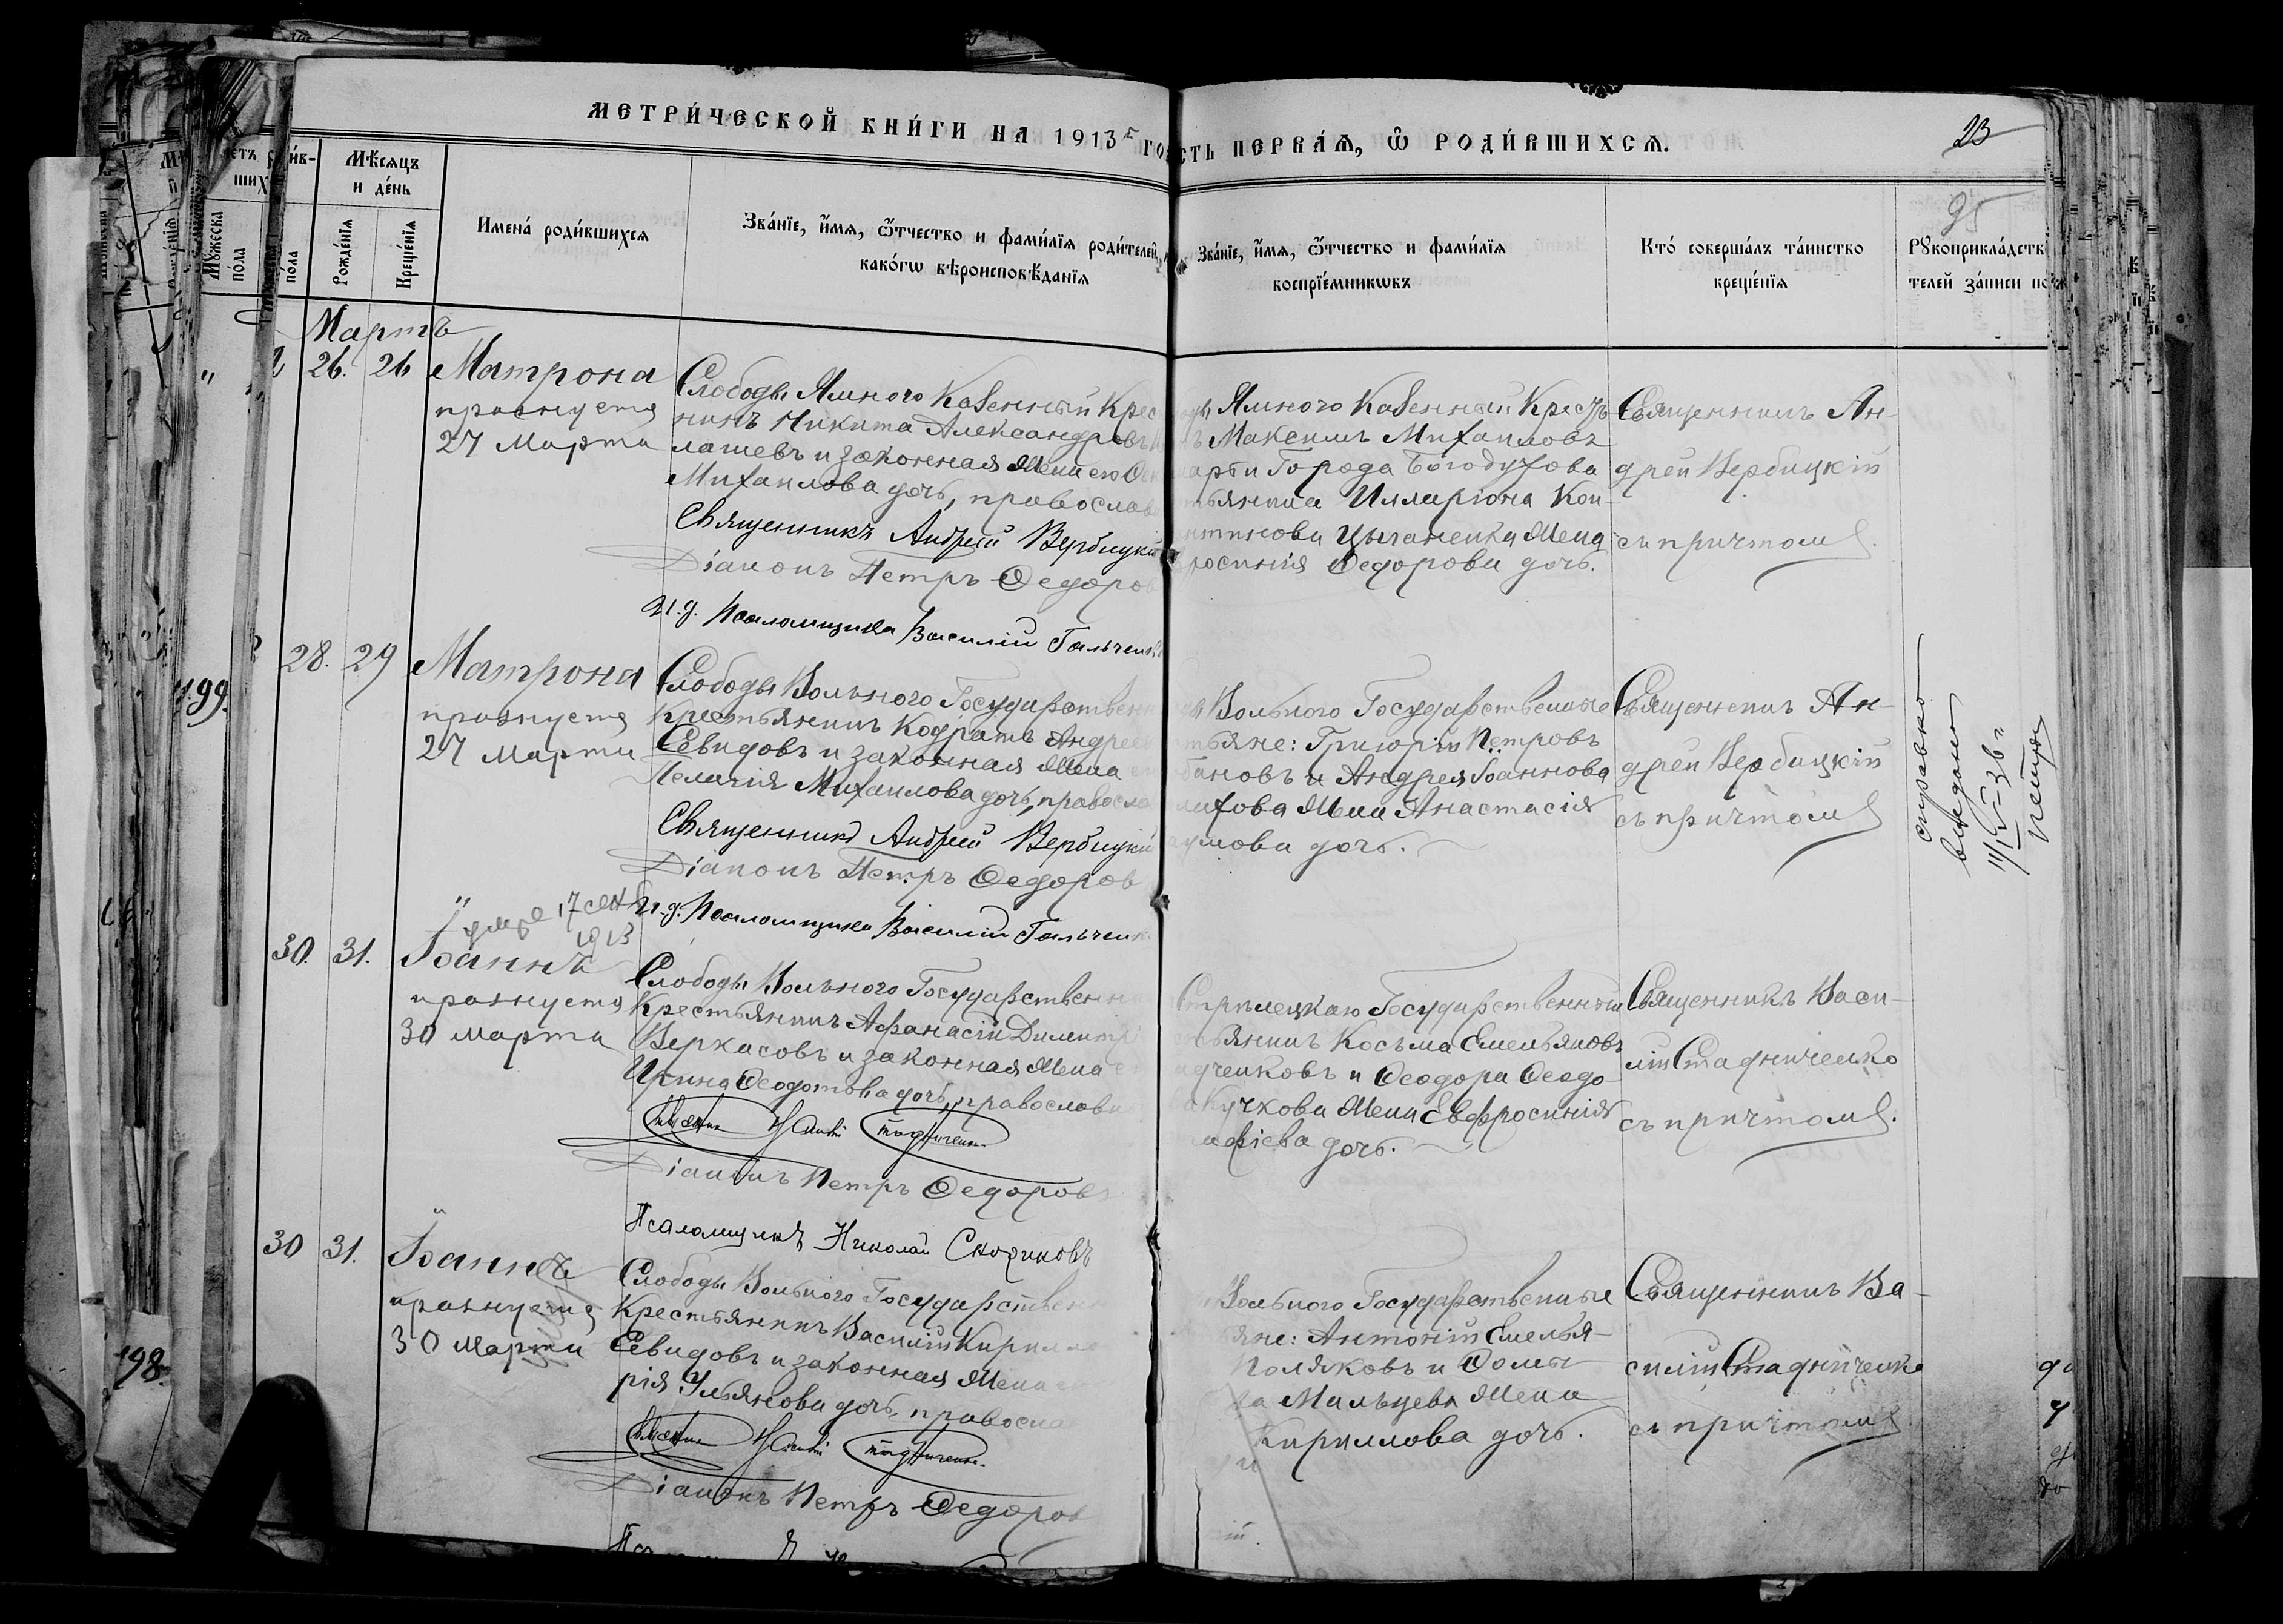 МЕТРИ́ЧЕСКОЙ КНИ́ГИ НА 1913 ГО
СТЬ ПЕРВА́Ѧ, Ѿ РОДИ́ВШИХСѦ.
23
95
Мѣ́сѧцъ
и де́нь
Мꙋ́жеска
по́ла
пола
Рожде́нїѧ
Креще́нїѧ
Имена̀ роди́вшихсѧ
Зва́нїе, и҆́мѧ, ѻ҆́тчество и фами́лїѧ роди́телей,
како́гѡ вѣроисповѣ́данїѧ
Зва́нїе, и҆́мѧ, ѻ҆́тчество и фами́лїѧ
воспрїе́мникѡвъ
Кто̀ соверша́лъ та́инство
креще́нїѧ
Рꙋкоприкла́дств
телей за́писи по
Мартъ
26. 26 Матрона
празнуетъ
27 Марта
Слободы Ямного Казенный Крес
нинъ Никита Александровъ
лашевъ и законная жена его
Михаилова дочь, православ
Священникъ Андрей Вербицкий
Діаконъ Петръ Федоров
И.д. Псаломщика Василій Гальченк
Ямного Казенный Крест
ъ Максимъ Михаиловъ
Города Богодухова
тьянина Илларіона Кон-
нтинова Цыганенка жена
росинія Федорова дочь.
Священникъ Ан-
дрей Вербицкій
съ причтомъ.
28. 29 Матрона
празнуетъ
27 Марта
Слободы Вольного Государственн
Крестьянинъ Кодратъ Андреев
Севидовъ и законная жена
Пелагія Михаилова дочь, правосла
Священникъ Андрей Вербицкий
Діаконъ Петръ Федоров
И.д. Псаломщика Василій Гальченк
Вольного Государственные
тьяне: Григорій Петровъ
бановъ и Андрея Іоаннова
хова жена Анастасія
умова дочь.
Священникъ Ан-
дрей Вербицкій
съ причтомъ
справка
выдана
199.
умре 17 сен
1913
30. 31. Іоаннъ
празнуетъ
30 марта
Слободы Вольного Государственн
Крестьянинъ Афанасій Димитр
Веркасовъ и законная жена
Ирина Феодотова дочь, православн
Діаконъ Петръ Федоровъ
Псаломщикъ Николай Скориковъ
Стрилецкаго Государственный
тьянинъ Косьма Емельяновъ
дченковъ и Феодора Феодо-
Кучкова жена Евфросинія
фіева дочь.
Священникъ Васи-
лій Стадниченко
съ причтомъ.
30 31. Іоаннъ
празнуетъ
30 Марта
Слободы Вольного Государствен
Крестьянинъ Василій Кирилло
Севидовъ и законная жена
рія Ульянова дочь, правосла
Діаконъ Петръ Федоров
Вольного Государственные
яне: Антоній Емелья-
Поляковъ и Фомы
Мальцева жена
Кириллова дочь.
Священникъ Ва-
силій Стадниченко
съ причтомъ
198.